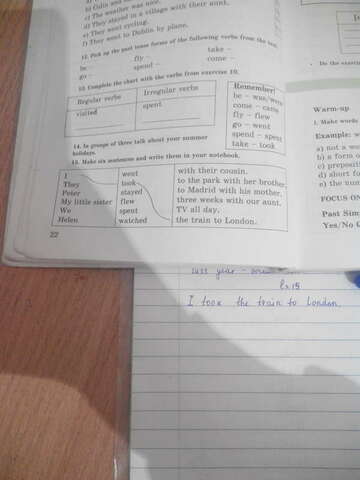 b) Colin and
c) The weather was nice.
d) They stayed in a village with their aunt.
e) They went cycling.
f) They went to Dublin by plane.
12. Pick up the past tense forms of the following verbs from the text.
be – fly – take –
go – spend – come –
13. Complete the chart with the verbs from exercise 10.
Regular verbs Irregular verbs
visited spent
Remember!
be – was/were
come – came
fly – flew
go – went
spend – spent
take – took
14. In groups of three talk about your summer
holidays.
15. Make six sentences and write them in your notebook.
I went with their cousin.
They took to the park with her brother.
Peter stayed to Madrid with his mother.
My little sister flew three weeks with our aunt.
We spent TV all day.
Helen watched the train to London.
22
• Do the exerci
Warm-up
1. Make words
Example: w
a) not a wo
b) a form o
c) preposit
d) short fo
e) the num
FOCUS ON
Past Sim
Yes/No Q
last year –
Ex 15
I took the train to London.